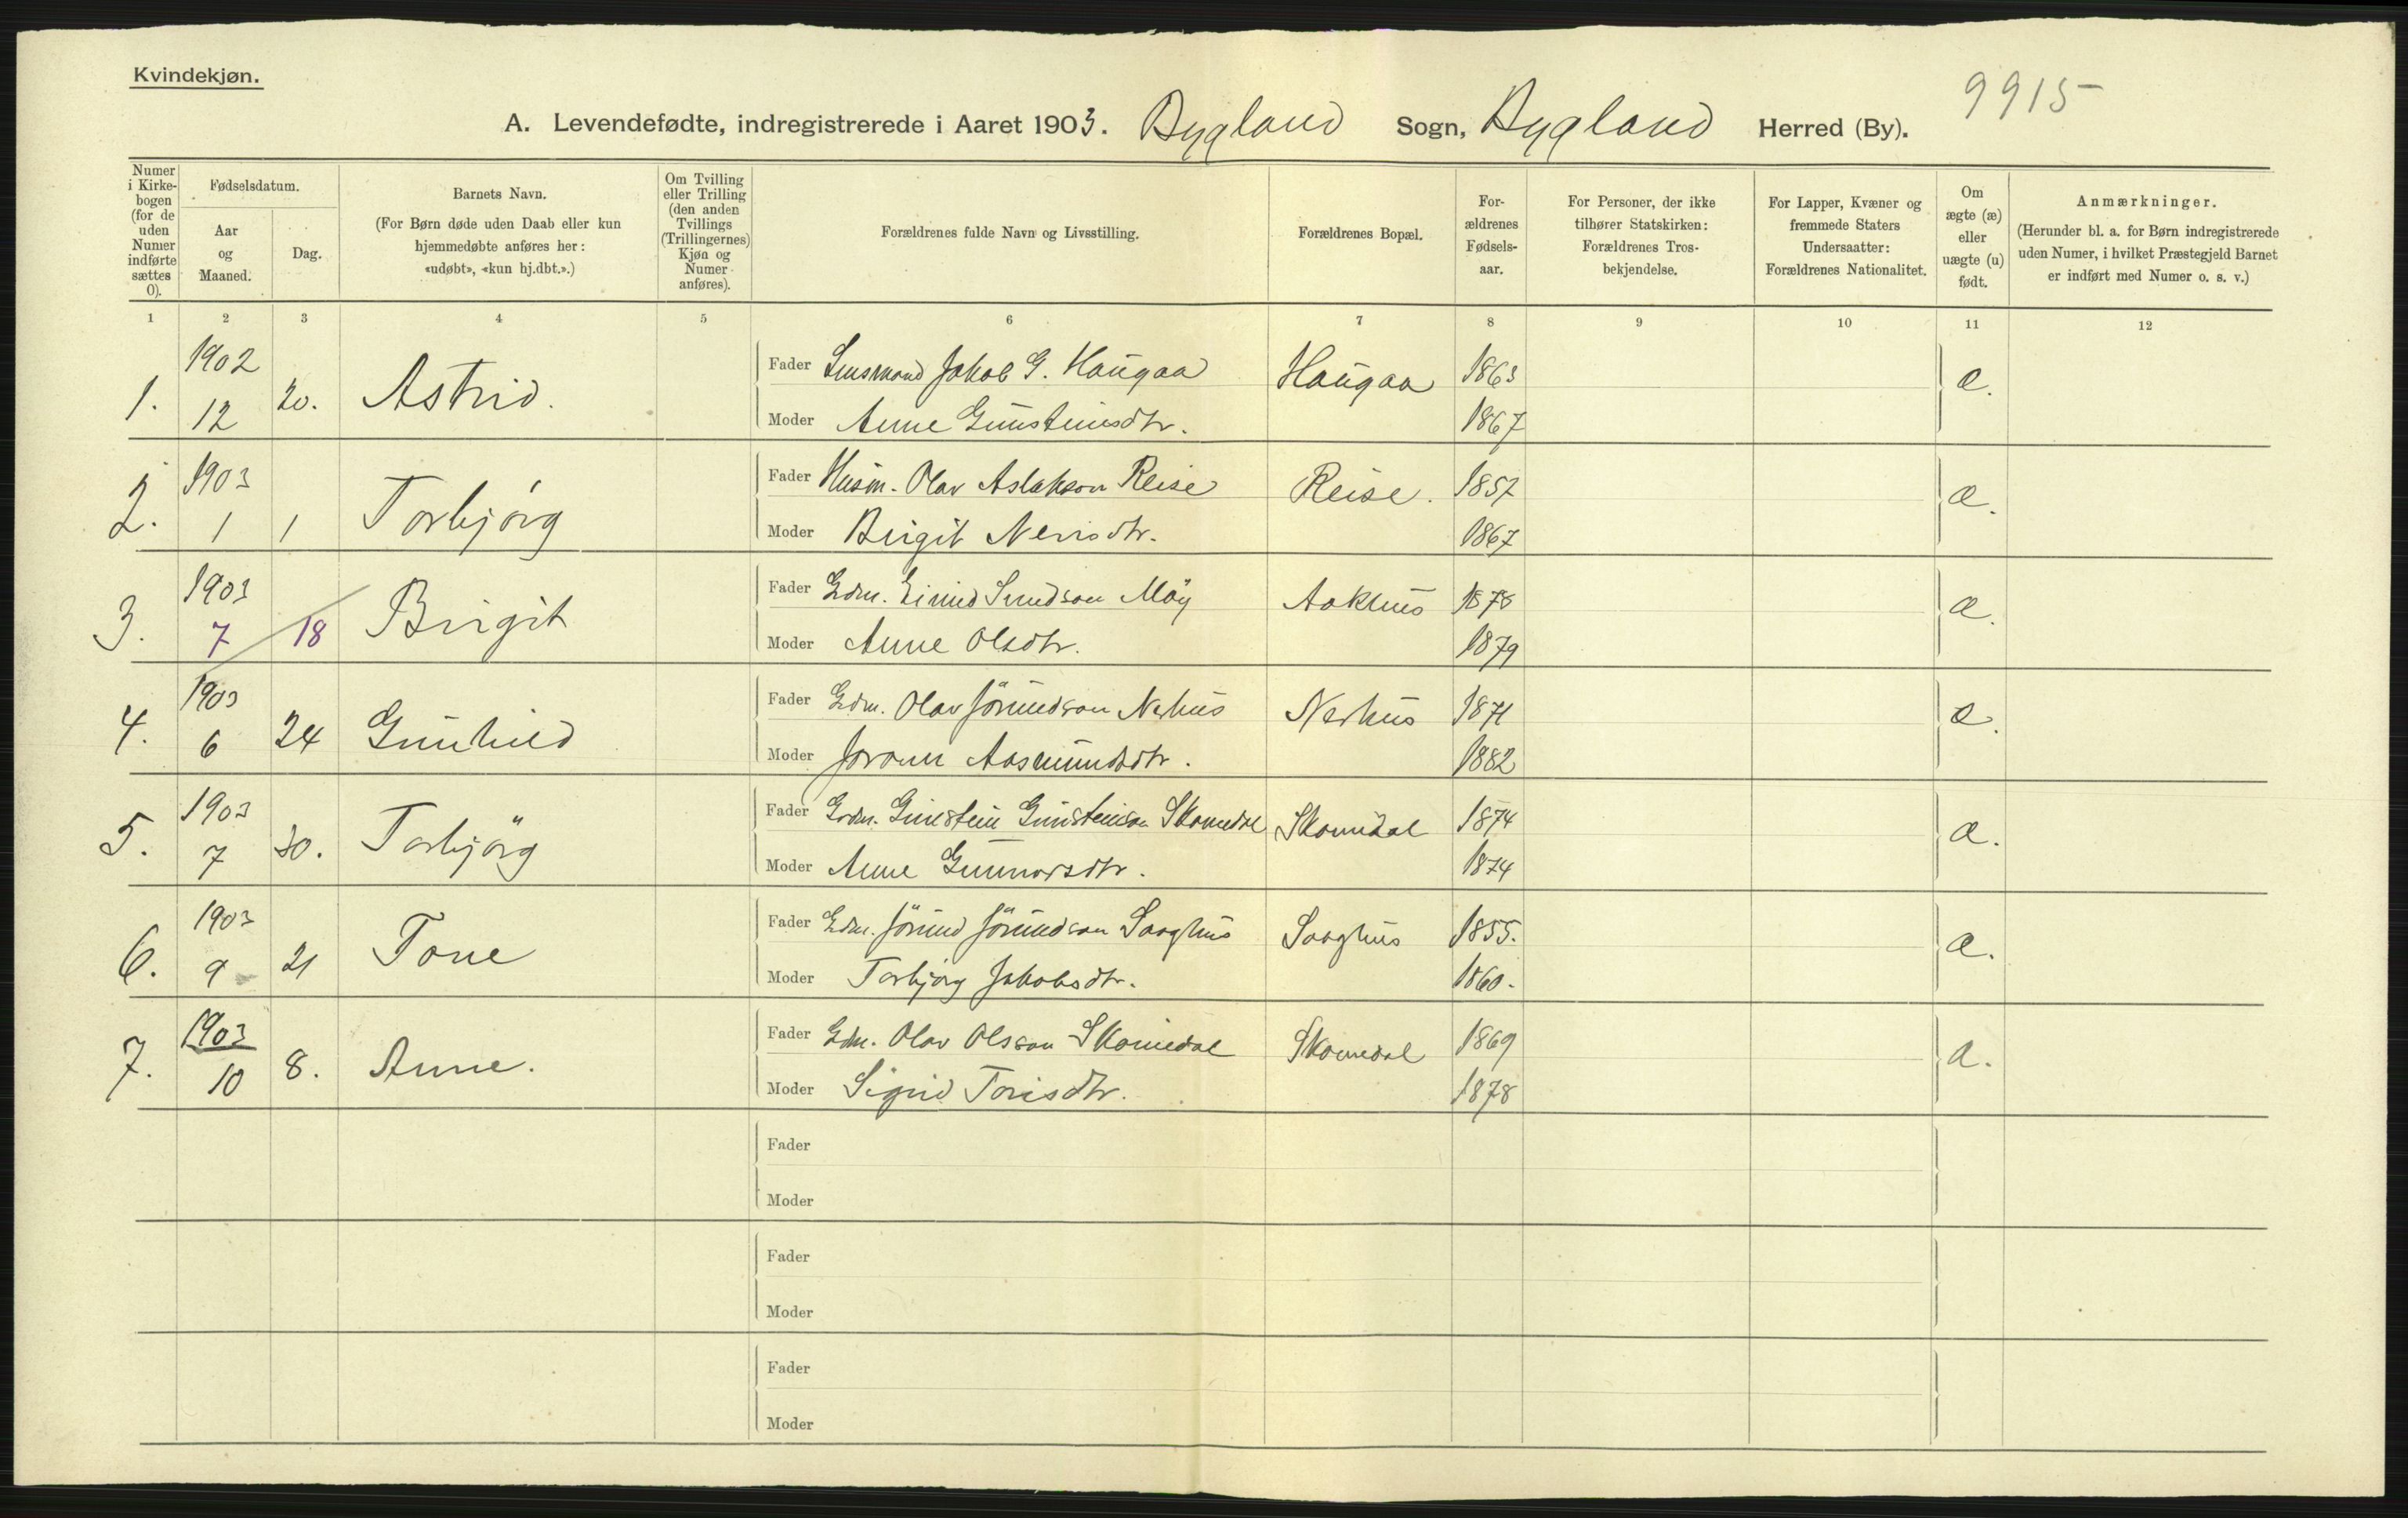 Kvindekjøn.
9915
A. Levendefødte, indregistrerede i Aaret 1903. Bygland Sogn, Bygland Herred (By).
Numer i Kirkebogen (for de uden Numer indførte sættes 0).
Fødselsdatum.
Aar og Maaned.
Dag.
Barnets Navn.
(For Børn døde uden Daab eller kun hjemmedøbte anføres her: «udøbt», «kun hj.dbt.».)
Om Tvilling eller Trilling (den anden Tvillings (Trillingernes) Kjøn og Numer anføres).
Forældrenes fulde Navn og Livsstilling.
Forældrenes Bopæl.
Forældrenes Fødselsaar.
For Personer, der ikke tilhører Statskirken: Forældrenes Trosbekjendelse.
For Lapper, Kvæner og fremmede Staters Undersaatter: Forældrenes Nationalitet.
Om ægte (æ) eller uægte (u) født.
Anmærkninger.
(Herunder bl. a. for Børn indregistrerede uden Numer, i hvilket Præstegjeld Barnet er indført med Numer o. s. v.)
1 2 3 4 5 6 7 8 9 10 11 12
1. 1902 12 20. Astrid. Fader Lensmand Jakob G. Haugaa Haugaa 1863 æ.
Moder Anne Gunsteinsdtr. 1867
2. 1903 1 1 Torbjörg Fader Husm. Olav Aslakson Reise Reise. 1857 æ.
Moder Birgit Nerisdtr. 1867
3. 1903 7 18 Birgit Fader Gdm. Eivind Knudson Möy Aakhus 1878 æ.
Moder Anne Olsdtr. 1879
4. 1903 6 24 Gunhild Fader Gdm. Olav Jörundson Nerhus Nerhus 1871 æ.
Moder Joronn Aasmundsdtr. 1882
5. 1903 7 30. Torbjörg Fader Gdm. Gunstein Gunsteinson Skomedal Skomedal 1874 æ.
Moder Anne Gunnarsdtr. 1874
6. 1903 9 21 Tone Fader Gdm. Jörund Jörundson Saaghus Saaghus 1855. æ.
Moder Torbjörg Jakobsdtr. 1860.
7. 1903 10 8. Anne. Fader Gdm. Olav Olsson Skomedal Skomedal 1869 æ.
Moder Sigrid Torisdtr. 1878
Fader
Moder
Fader
Moder
Fader
Moder